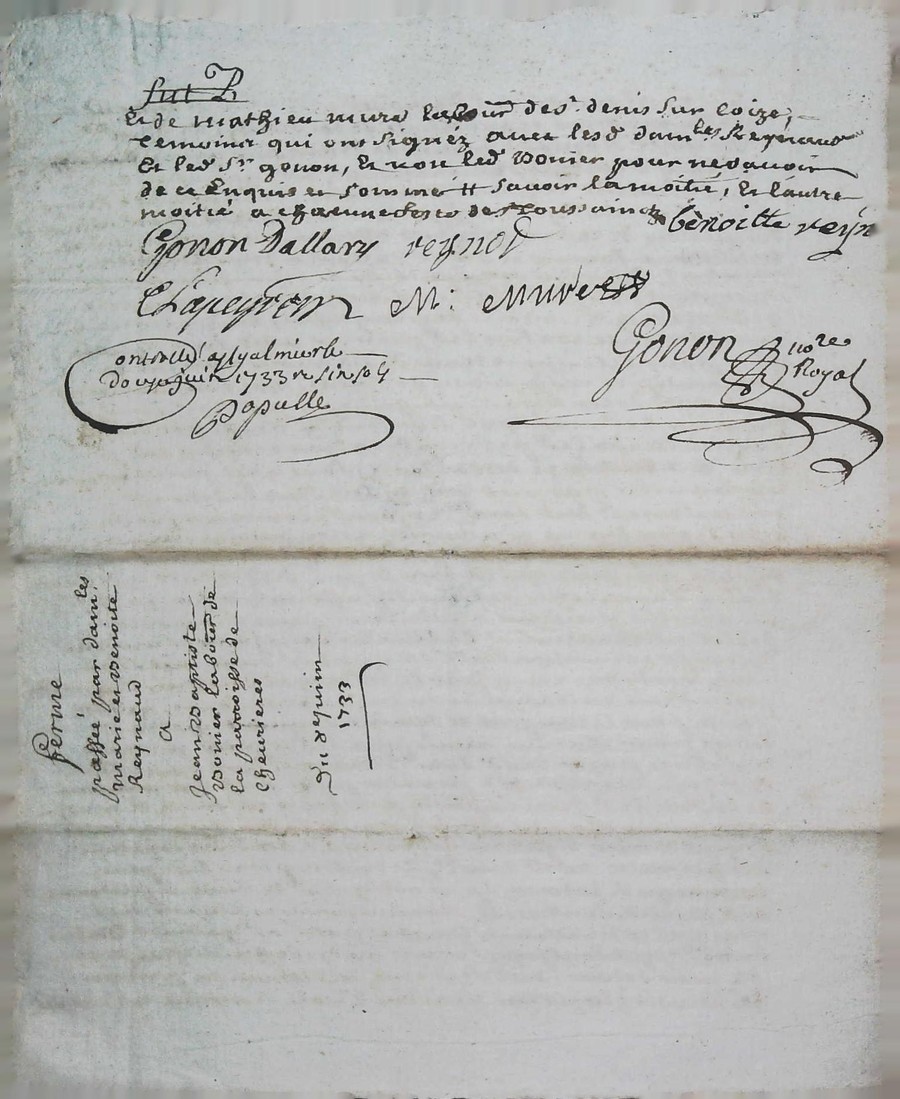 Et de mathieu mure labour de st denis sur coize,
temoins qui ont signéz avec lesd damlles Reynaud
Et led Sr gonon, Et non led Bonier pour ne savoir
de ce Enquis et sommé # savoir la moitié, Et lautre
moitié a chacune feste de Toussaincts benoitte reyn
Gonon Dallary reynod
Clapeyron M: Mure
ontrollé a St galmier le
douze juin 1733 r six sols
Papulle
Gonon nore
Royal
ferme
passée par damlles
marie et Benoite
Reynaud
a
Jean Baptiste
Bonier labour de
la parroisse de
Chevrieres
Du juin
1733